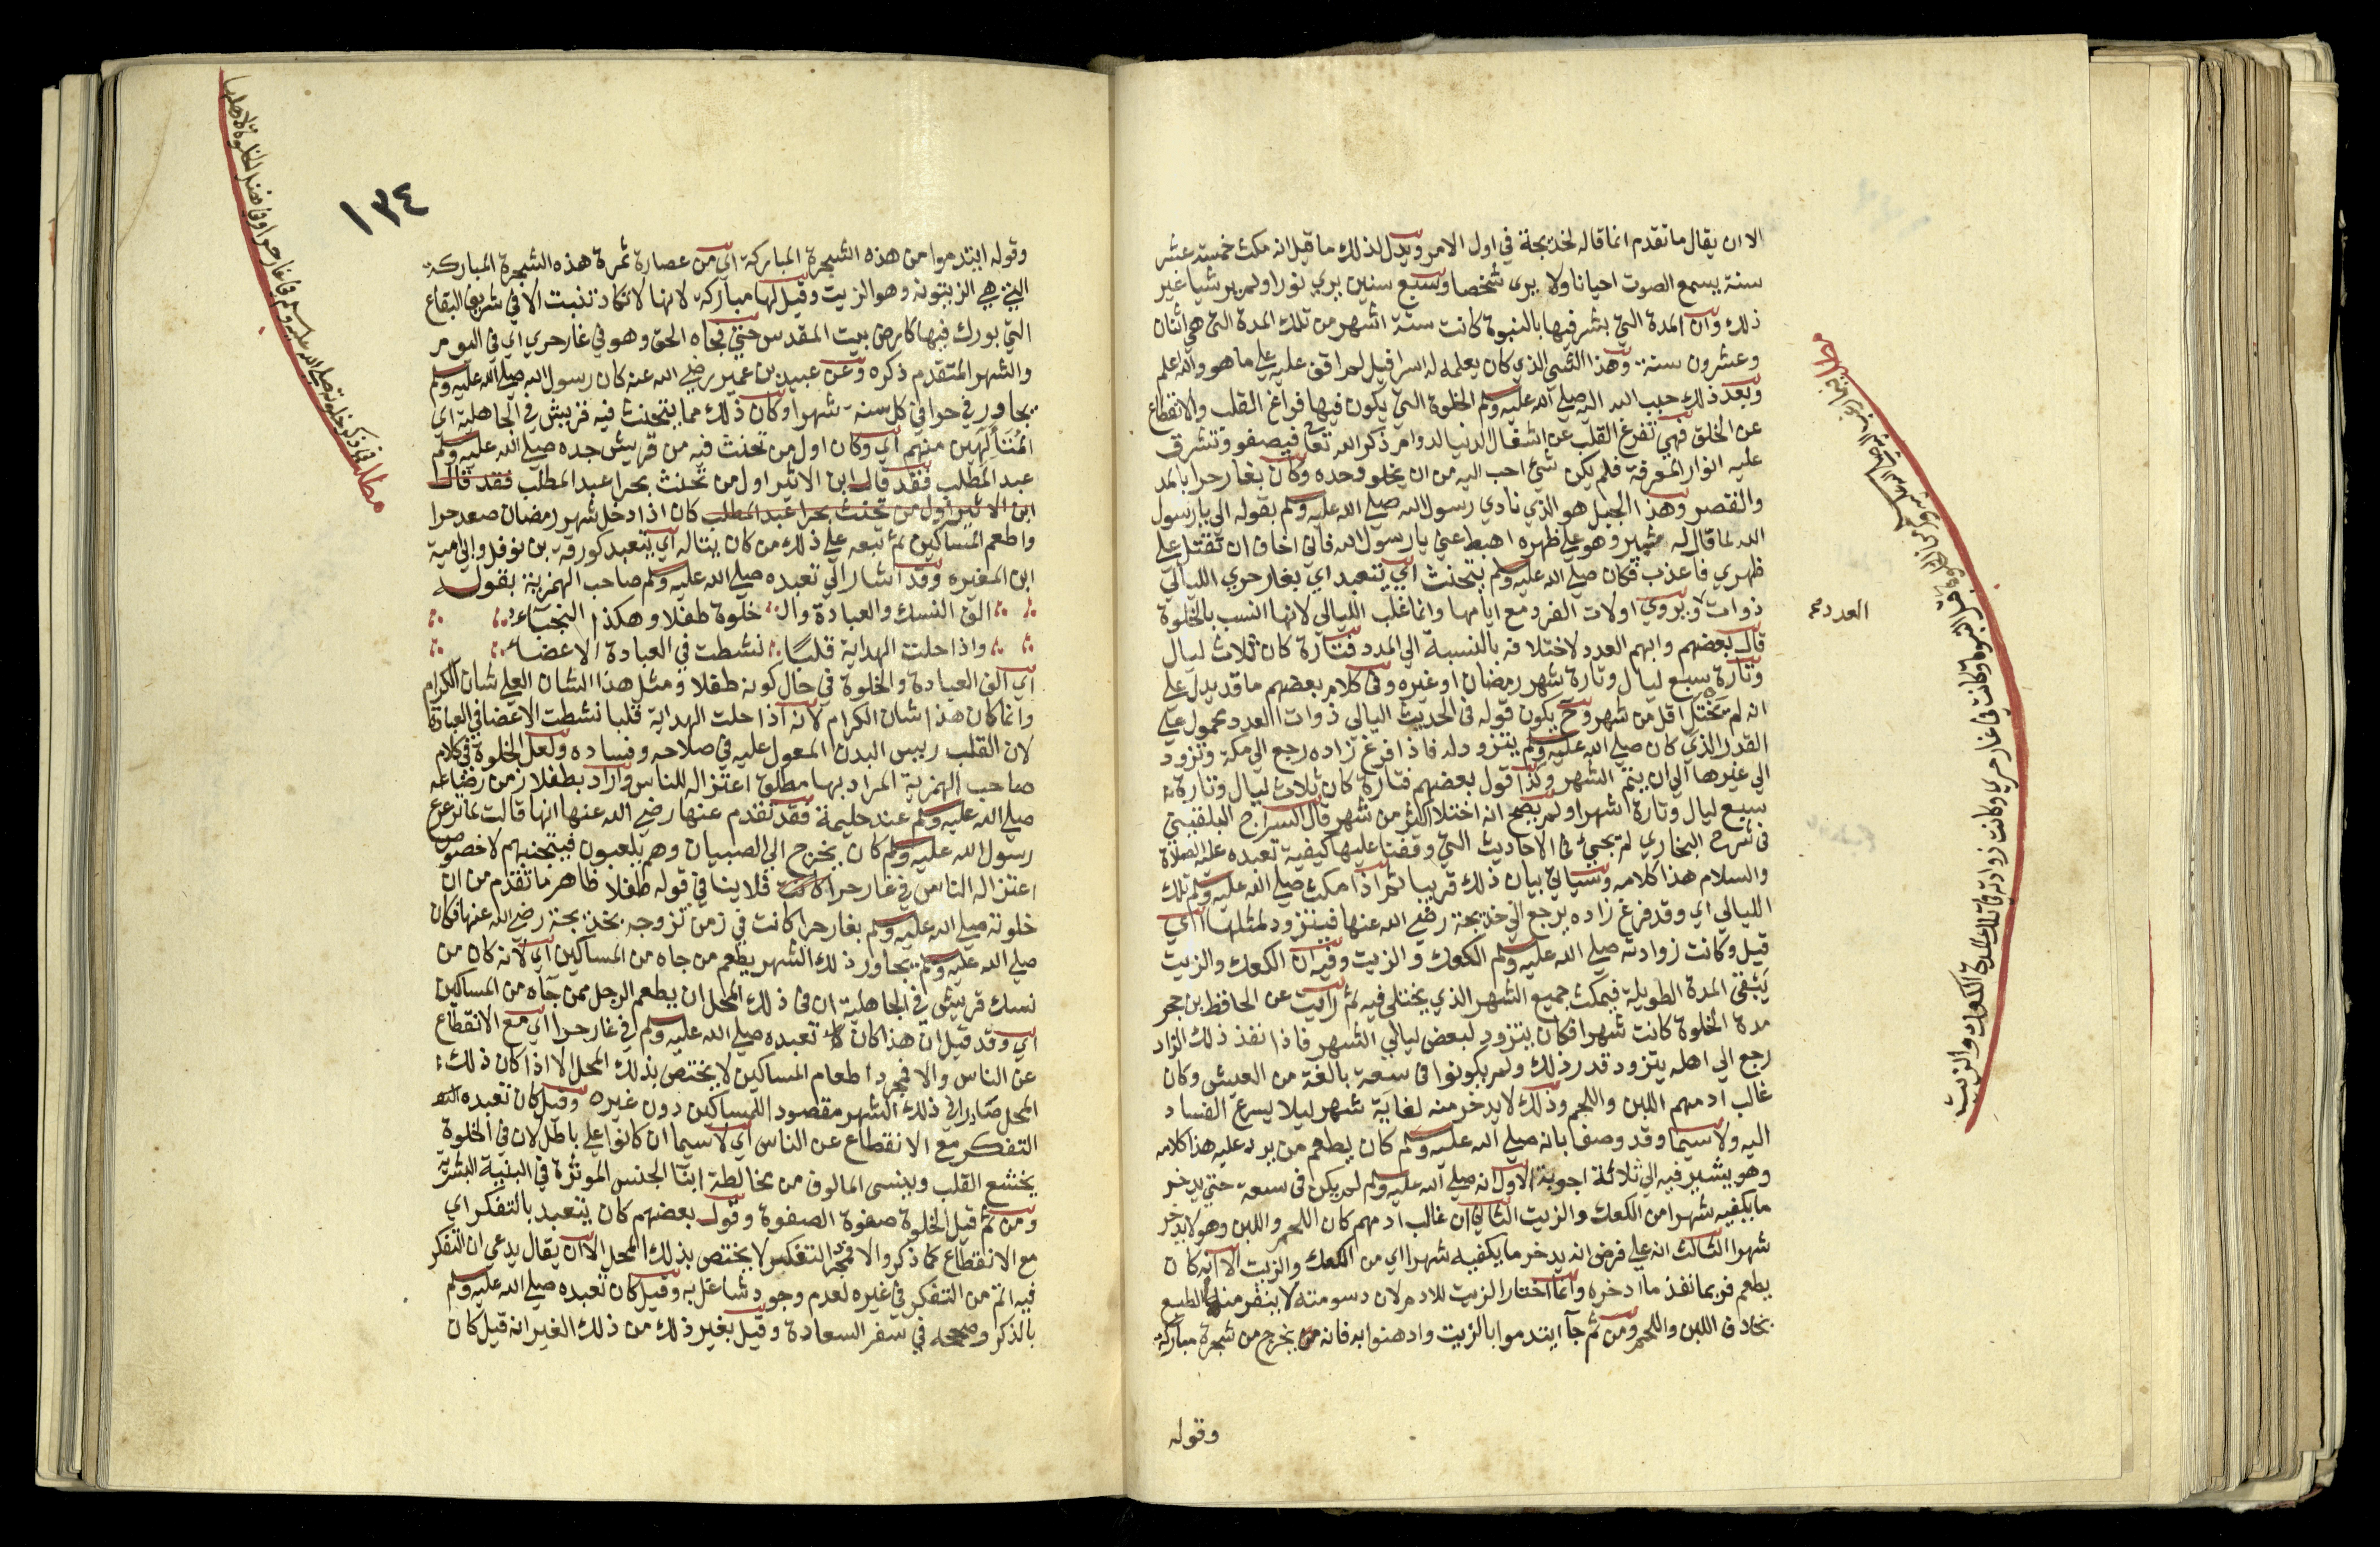 الا ان يقال ما تقدم انما قاله لخديجة في اول الامر ويدل لذلك ما قيل انه مكث خمسة عشر
سنة يسمع الصوت احيانا ولا يرى شخصا وسبع سنين يري نورا ولم ير شيا غير
ذلك وان المدة التي بشر فيها بالنبوة كانت ستة اشهر من تلك المدة التي هي اثنان
وعشرون سنة وهذا الشي الذي كان يعلمه له اسرافيل لم اقف عليه علي ما هو والله اعلم
وبعد ذلك حبب الله اليه صلي الله عليه وسلم الخلوة التي يكون فيها فراغ القلب والانقطاع
عن الخلق فهي تفرغ القلب عن اشغال الدنيا لدوام ذكر الله تعا فيصفو وتشرق
عليه انوار المعرفة فلم يكن شي احب اليه من ان يخلو وحده وكان بغار حرا بالمد
والقصر وهذا الجبل هو الذي نادي رسول الله صلي الله عليه وسلم بقوله الي يا رسول
الله لما قال له ثبير وهو علي ظهره اهبط عني يا رسول الله فاني اخاف ان تقتل علي
ظهري فاعذب فكان صلي الله عليه وسلم يتحنث اي يتعبد اي بغار حري الليالي
ذوات ويروي اولات الفرد مع ايامها وانما غلب الليالي لانها انسب بالخلوة
العدد صح
قال بعضهم وابهم العدد لاختلافه بالنسبة الي المدد فتارة كان ثلاث ليال
وتارة سبع ليال وتارة شهر رمضان او غيره وفي كلام بعضهم ما قد يدل علي
انه لم يختل اقل من شهر وح يكون قوله في الحديث اليالي ذوات العدد محمول علي
القدر الذي كان صلي الله عليه وسلم يتزود له فاذا فرغ زاده رجع الي مكة وتزود
الي غيرها الي ان يتم الشهر وكذا قول بعضهم فتارة كان ثلاث ليال وتارة
سبع ليال وتارة اشهرا ولم يصح انه اختلا اكثر من شهر قال السراج البلقيني
في شرح البخاري لم تجئ في الاحاديث التي وقفنا عليها كيفية تعبده عليه الصلاة
والسلام هذا كلامه وسيالي بيان ذلك قريبا ثم اذا مكث صلي الله عليه وسلم تلك
الليالي اي وقد فرغ زاده يرجع الي خديجة رضي الله عنها فيتزود لمثلها اي
قيل وكانت زوادته صلي الله عليه وسلم الكعك والزيت وفيه ان الكعك والزيت
يبقي المدة الطويلة فيمكث جميع الشهر الذي يختلي فيه ثم رايت عن الحافظ بن حجر
مدة الخلوة كانت شهرا فكان يتزود لبعض ليالي الشهر فاذا نفذ ذلك الزاد
رجع الي اهله يتزود قدر ذلك ولم يكونوا في سعة بالغة من العيش وكان
غالب ادمهم اللبن واللحم وذلك لا يدخر منه لغاية شهر ليلا يسرع الفساد
اليه ولا سيما وقد وصف بانه صلي الله عليه وسلم كان يطعم من يرد عليه هذا كلامه
وهو يشير فيه الي ثلاثة اجوبة الاول انه صلي الله عليه وسلم لم يكن في سعة حتي يدخر
ما يكفيه شهرا من الكعك والزيت الثاني ان غالب ادمهم كان اللحم واللبن وهو لا يدخر
شهرا الثالث انه علي فرض انه يدخر ما يكفيه شهرا اي من الكعك والزيت الا انه كان
يطعم فربما نفذ ما ادخره وانما اختار الزيت للادم لان دسومته لا ينفر منها الطبع
بخلاف اللبن واللحم ومن ثم جا ايتدموا بالزيت وادهنوا به فانه يخرج من شجرة مباركة
وقوله
١٣٤
وقوله ايتدموا من هذه الشجرة المباركة اي من عصارة ثمرة هذه الشجرة المباركة
التي هي الزيتونة وهو الزيت وقيل لها مباركة لانها لا تكاد تنبت الا في شريف البقاع
التي بورك فيها كارض بيت المقدس حتي فجاه الحق وهو في غار حري اي في اليوم
والشهر المتقدم ذكره وعن عبيد بن عمير رضي الله عنه كان رسول الله صلي الله عليه وسلم
يجاور في حرا في كل سنة شهرا وكان ذلك مما يتحنث فيه قريش في الجاهلية اي
المتألهين منهم اي وكان اول من تحنث فيه من قريش جده صلي الله عليه وسلم
عبد المطلب فقد قال ابن الاثير اول من تحنث بحرا عبد المطلب فقد قال
ابن الاثير اول من تحنث بحرا عبد المطلب كان اذا دخل شهر رمضان صعد حرا
واطعم المساكين ثم تبعه علي ذلك من كان يتاله اي يتعبد كورقة بن نوفل وابي امية
ابن المغيرة وقد اشار الي تعبده صلي الله عليه وسلم صاحب الهمزية بقوله
الف النسك والعبادة وال خلوة طفلا وهكذا النجباء
واذا حلت الهداية قلبًا نشطت في العبادة الاعضاء
اي الف العبادة والخلوة في حال كونه طفلا ومثل هذا الشان العلي شان الكرام
وانما كان هذا شان الكرام لانه اذا حلت الهداية قلبا نشطت الاعضا في العبادة
لان القلب رييس البدن المعول عليه في صلاحه وفساده ولعل الخلوة في كلام
صاحب الهمزية المراد بها مطلق اعتزاله للناس واراد بطفلا زمن رضاعه
صلي الله عليه وسلم عند حليمة فقد تقدم عنها رضي الله عنها انها قالت لما ترعرع
رسول الله عليه وسلم كان يخرج الي الصبيان وهم يلعبون فيتجنبهم لا خصوص
اعتزاله الناس في غار حرا كانت فلا ينافي قوله طفلا ظاهر ما تقدم من ان
خلوته صلي الله عليه وسلم بغار حرا كانت في زمن تزوجه بخديجة رضي الله عنها فكان
صلي الله عليه وسلم يجاور ذلك الشهر يطعم من جاه من المساكين اي لانه كان من
نسك قريش في الجاهلية ان في ذلك المحل ان يطعم الرجل من جآه من المساكين
اي وقد قيل ان هذا كان تعبده صلي الله عليه وسلم في غار حرا اي مع الانقطاع
عن الناس والا فمجرد اطعام المساكين لا يختص بذلك المحل الا اذا كان ذلك
المحل صار في ذلك الشهر مقصودا للمساكين دون غيره وقيل كان تعبده
التفكر مع الانقطاع عن الناس اي لا سيما ان كانوا علي باطل لان في الخلوة
يخشع القلب وينسى المالوف من مخالطة ابنآ الجنس الموثرة في البنية البشرية
ومن ثم قيل الخلوة صفوة الصفوة وقول بعضهم كان يتعبد بالتفكر اي
مع الانقطاع كما ذكر والا فمجرد التفكر لا يختص بذلك المحل الا ان يقال يدعي ان التفكر
فيه اتم من التفكر في غيره لعدم وجود شاغل به وقيل كان تعبده صلي الله عليه وسلم
بالذكر وصححه في سفر السعادة وقيل بغير ذلك من ذلك الغير انه قيل كان